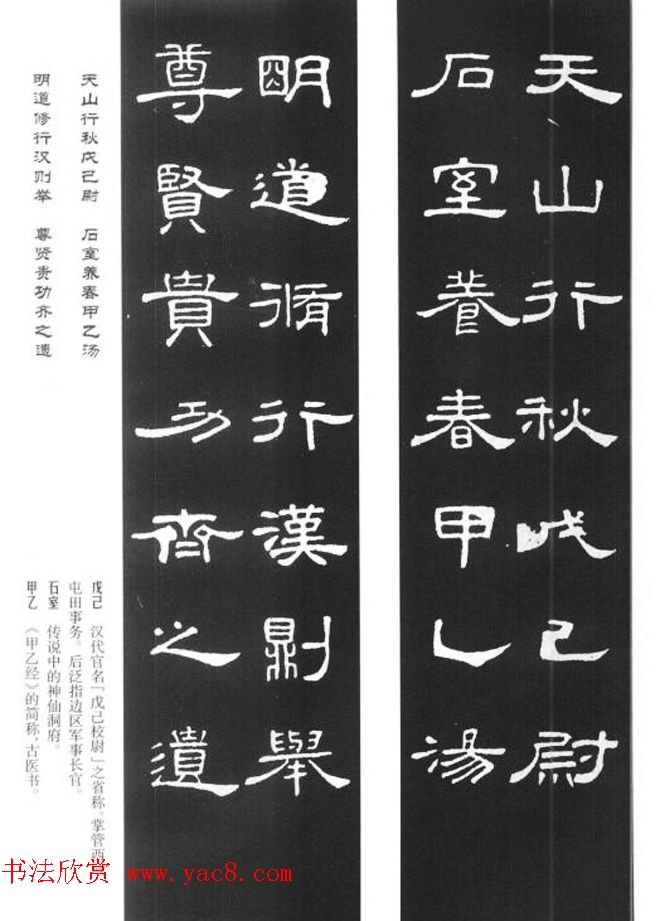 天山行秋戊己尉
石室養春甲乙湯
明道脩行漢則舉
尊賢貴功齊之遺
天山行秋戊己尉 石室养春甲乙汤
明道修行汉则举 尊贤贵功齐之遗
戊己 汉代官名『戊己校尉』之省称。掌管西
屯田事务。后泛指边区军事长官。
石室 传说中的神仙洞府。
甲乙 《甲乙经》的简称，古医书。
书法欣赏 www.yac8.com